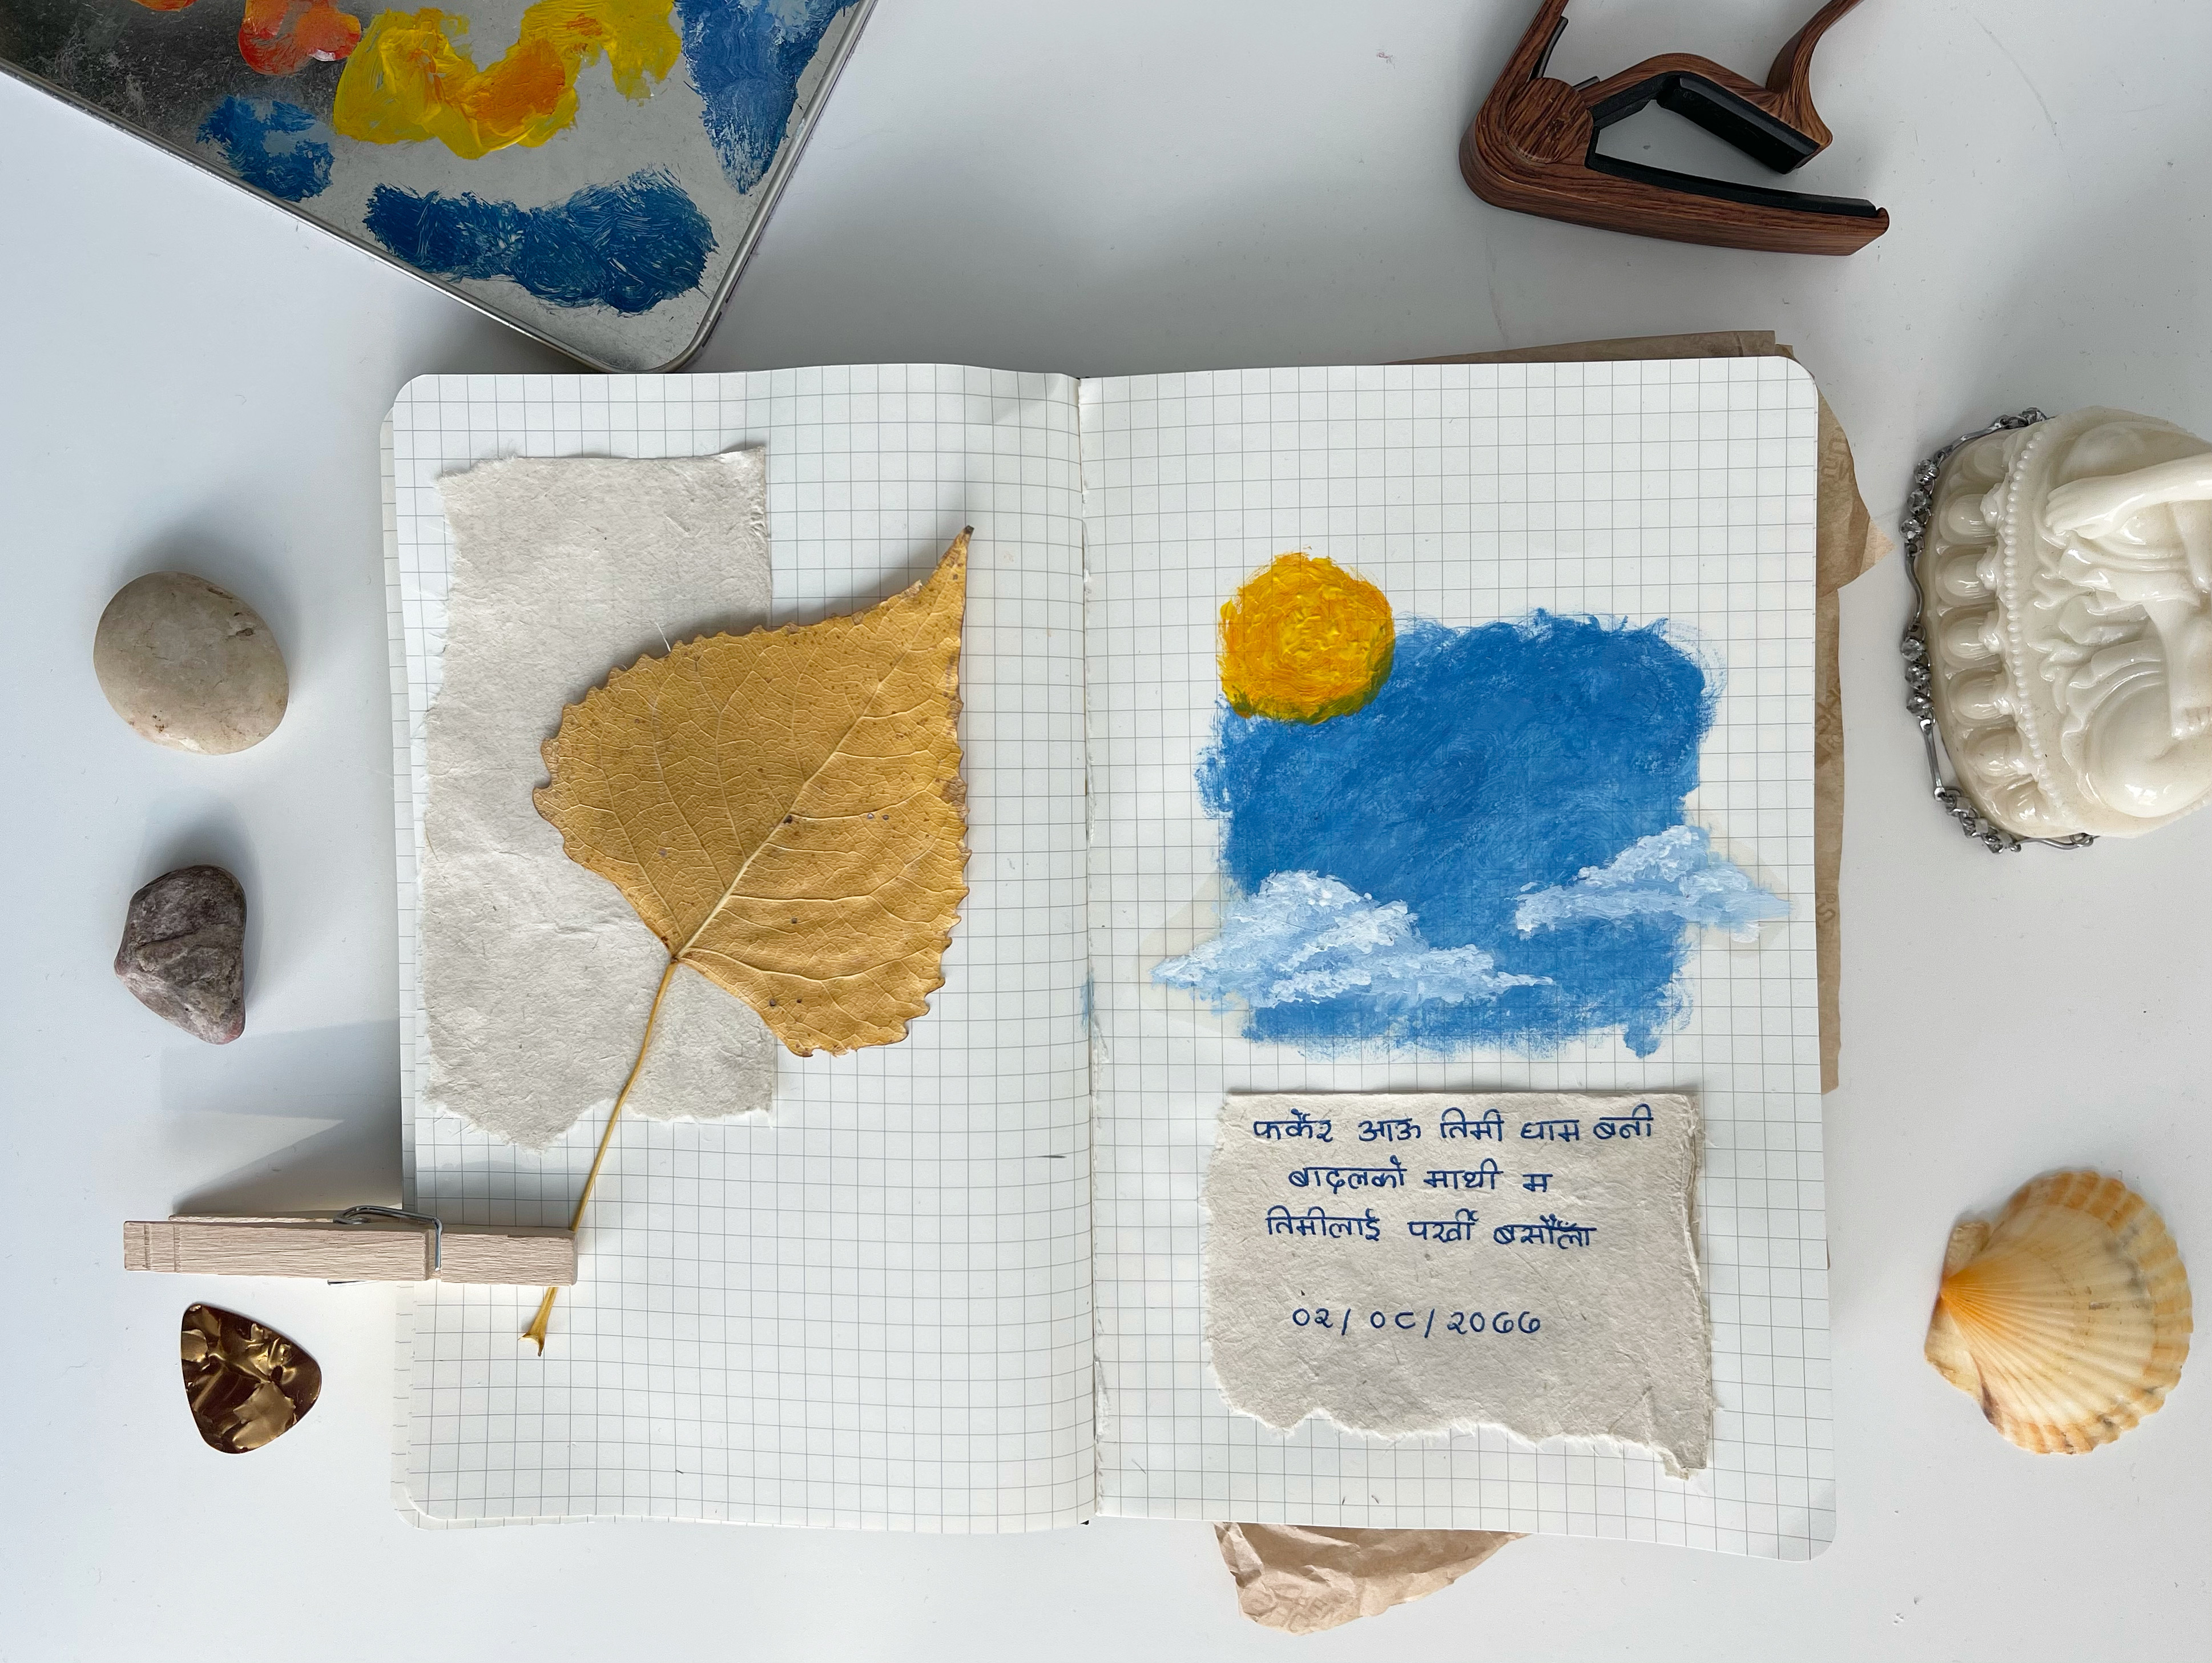 फर्केर आऊ तिमी घाम बनी
बादलको माथी म
तिमीलाई पर्खी बसौँला
०२/ ०८/२०७७